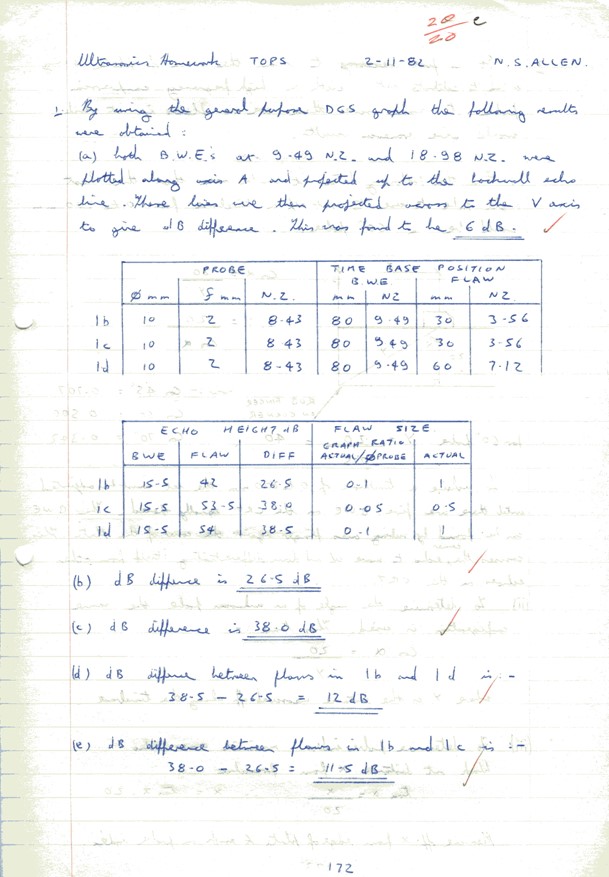 20/20 c
Ultrasonics Homework TOPS 2-11-82 N.S.ALLEN.
1. By using the general purpose DGS graph the following results
were obtained :
(a) both B.W.E.s at 9.49 N.Z. and 18.98 N.Z. were
plotted along axis A and projected up to the backwall echo
line. These lines were then projected across to the V axis
to give dB difference. This was found to be 6 dB.
PROBE TIME BASE POSITION
B.W.E. FLAW
Ø mm f mm N.Z. mm NZ mm NZ
1b 10 2 8.43 80 9.49 30 3.56
1c 10 2 8.43 80 9.49 30 3.56
1d 10 2 8.43 80 9.49 60 7.12
ECHO HEIGHT dB FLAW SIZE
GRAPH RATIO
BWE FLAW DIFF ACTUAL/ØPROBE ACTUAL
1b 15.5 42 26.5 0.1 1
1c 15.5 53.5 38.0 0.05 0.5
1d 15.5 54 38.5 0.1 1
(b) dB difference is 26.5 dB
(c) dB difference is 38.0 dB
(d) dB differnce between flaws in 1b and 1d is :-
38.5 - 26.5 = 12 dB
(e) dB difference between flaws in 1b and 1c is :-
38.0 - 26.5 = 11.5 dB
172